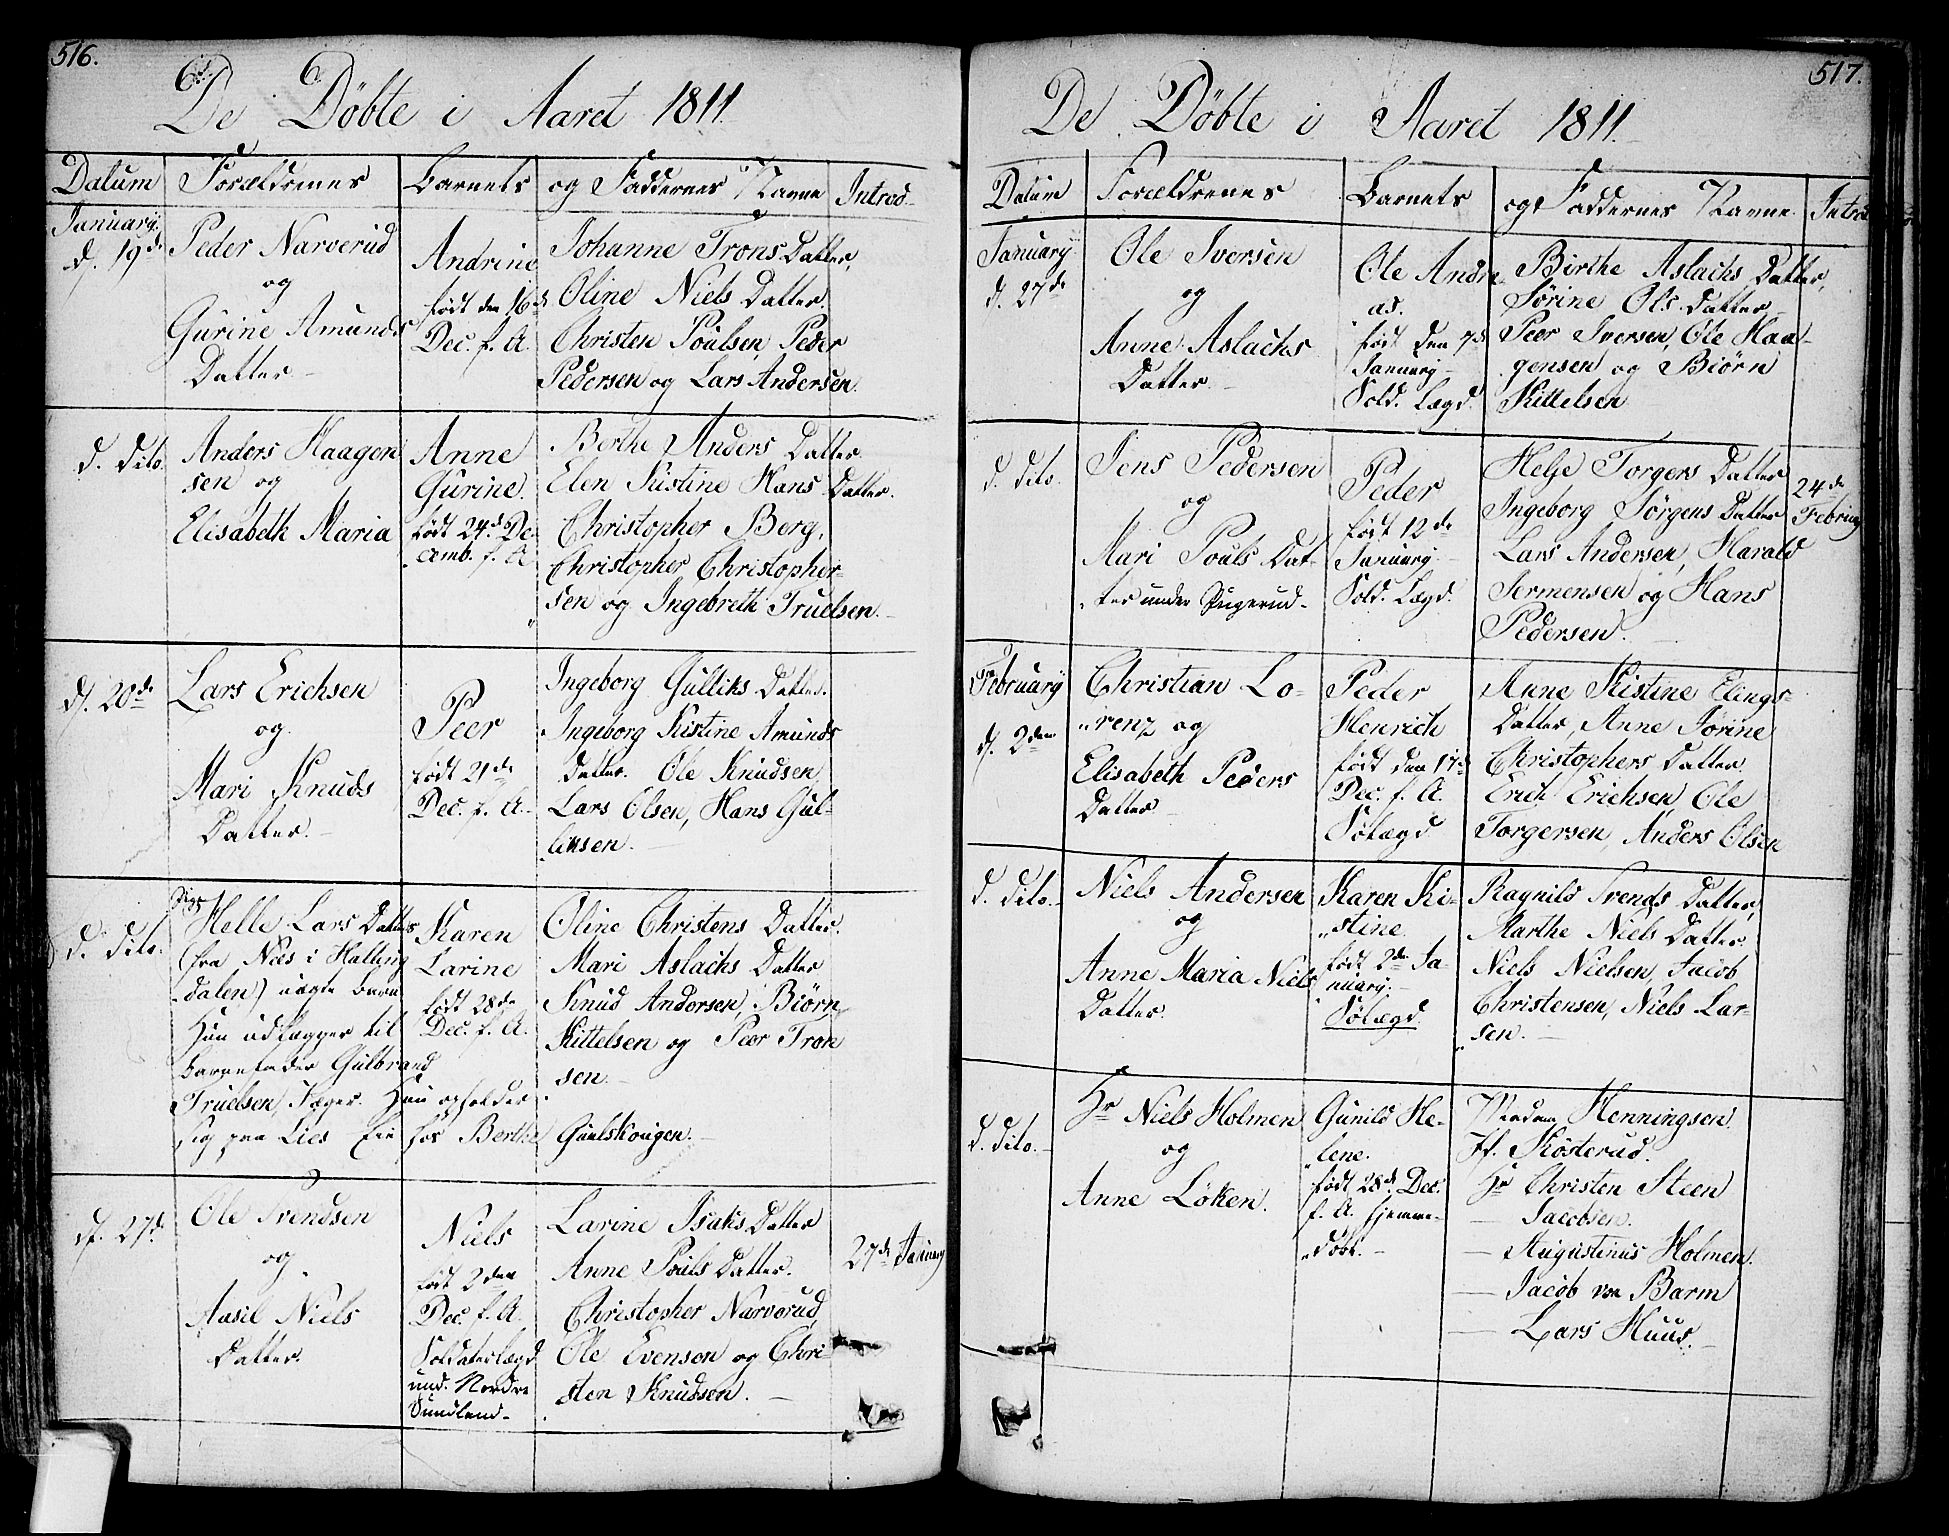 516.
De Döbte i Aaret 1811.
Datum Forældrenes Barnets og Faddernes Navne Introd.
January
d. 19de
Peder Narverud
og
Gurine Amunds
Datter
Andrine
født den 16de
Dec. f. A.
Johanne Trons Datter,
Oline Niels Datter
Christen Poulsen, Peder
Pedersen og Lars Andersen.
d. dito.
Anders Haagen
sen og
Elisabeth Maria
Anne
Gurine.
født 24de De-
cemb. f. A.
Berthe Anders Datter
Elen Kistine Hans Datter.
Christopher Berg,
Christopher Christopher-
sen og Ingebreth Truelsen.
d. 20de
Lars Erichsen
og
Mari Knuds
Datter.
Peer
født 21de
Dec. f. A.
Ingeborg Gulliks Datter.
Ingeborg Kistine Amunds
Datter. Ole Knudsen,
Lars Olsen, Hans Gul-
liksen.
d. dito.
Pige
Helle Lars Datter
(fra Næs i Halling
dalen) uægte Barn
Hun udlægger til
Barnefader Gulbrand
Truelsen, Jæger. Hun opholder
sig paa Lies Eie hos Berthe Guulskougen.
Karen
Larine
født 28de
Dec. f. A.
Oline Christens Datter.
Mari Aslachs Datter
Knud Andersen, Biörn
Kittelsen og Peer Tron
sen.
d. 27de
Ole Svendsen
og
Aasil Niels
Datter.
Niels
født 2den
Dec. f. A.
Soldaterlægd
und. Nordre
Sundland.
Larine Isaks Datter
Anne Pouls Datter.
Christopher Narverud,
Ole Evensen og Chri-
sten Knudsen.
27de January
517.
De Döbte i Aaret 1811.
Datum Forældrenes Barnets og Faddernes Navne Introd
January
d. 27de
Ole Iversen
og
Anne Aslachs
Datter.
Ole Andre-
as.
født den 7de
January
Sold. Lægd.
Birthe Aslachs Datter,
Sörine Ols Datter
Peer Iversen, Ole Haa-
gensen og Biörn
Kittelsen
d. dito.
Jens Pedersen
og
Mari Pouls Dat-
ter under Pugerud.
Peder
født 12de
January
Sold. Lægd.
Helje Torgers Datter
Ingeborg Jörgens Datter
Lars Andersen, Harald
Sermensen og Hans
Pedersen.
24de
February
February
d. 2den
Christian Lo-
renz og
Elisabeth Peders
Datter
Peder
Henrich
født den 17de
Dec. f. A.
Sölægd
Anne Kistine Elings
Datter, Anne Sorine
Christophers Datter
Erich Erichsen, Ole
Torgersen, Anders Olsen
d. dito.
Niels Andersen
og
Anne Maria Niels
Datter.
Karen Ki-
stine.
født 2den Ja-
nuary.
Sölægd.
Ragnild Svends Datter,
Marthe Niels Datter
Niels Nielsen, Jacob
Christensen, Niels Lar-
sen.
d. dito.
Hr Niels Holmen
og
Anne Löken.
Gunild He-
lene.
født 28de Dec.
f. A. hjemme-
döbt.
Madam Henningsen.
Jf. Skösterud.
Hr Christen Steen
— Jacobsen.
— Augustinus Holmen.
— Jacob von Barm
— Lars Huus.